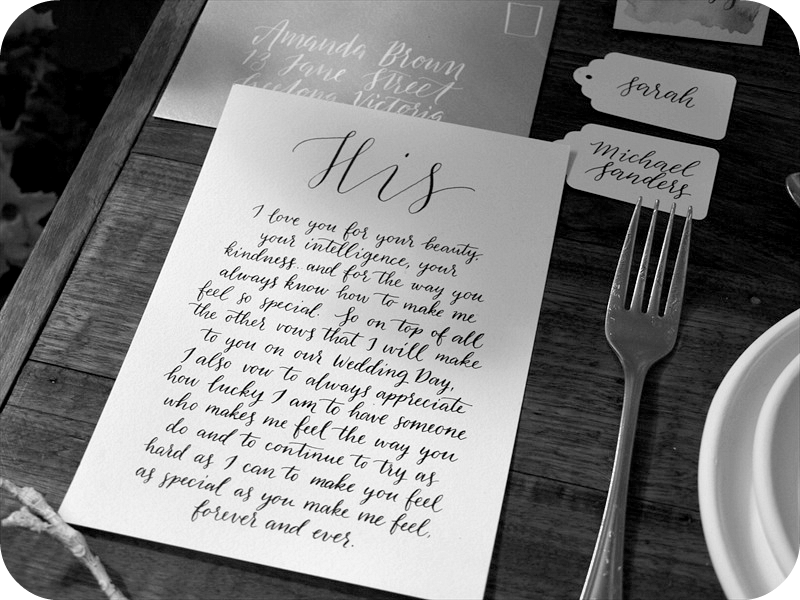 Amanda Brown
13 Jane Street
Victoria
sarah
Michael
Sanders
His
I love you for your beauty,
your intelligence, your
kindness.. and for the way you
always know how to make me
feel so special. So on top of all
the other vows that I will make
to you on our Wedding Day,
I also vow to always appreciate
how lucky I am to have someone
who makes me feel the way you
do and to continue to try as
hard as I can to make you feel
as special as you make me feel.
forever and ever.